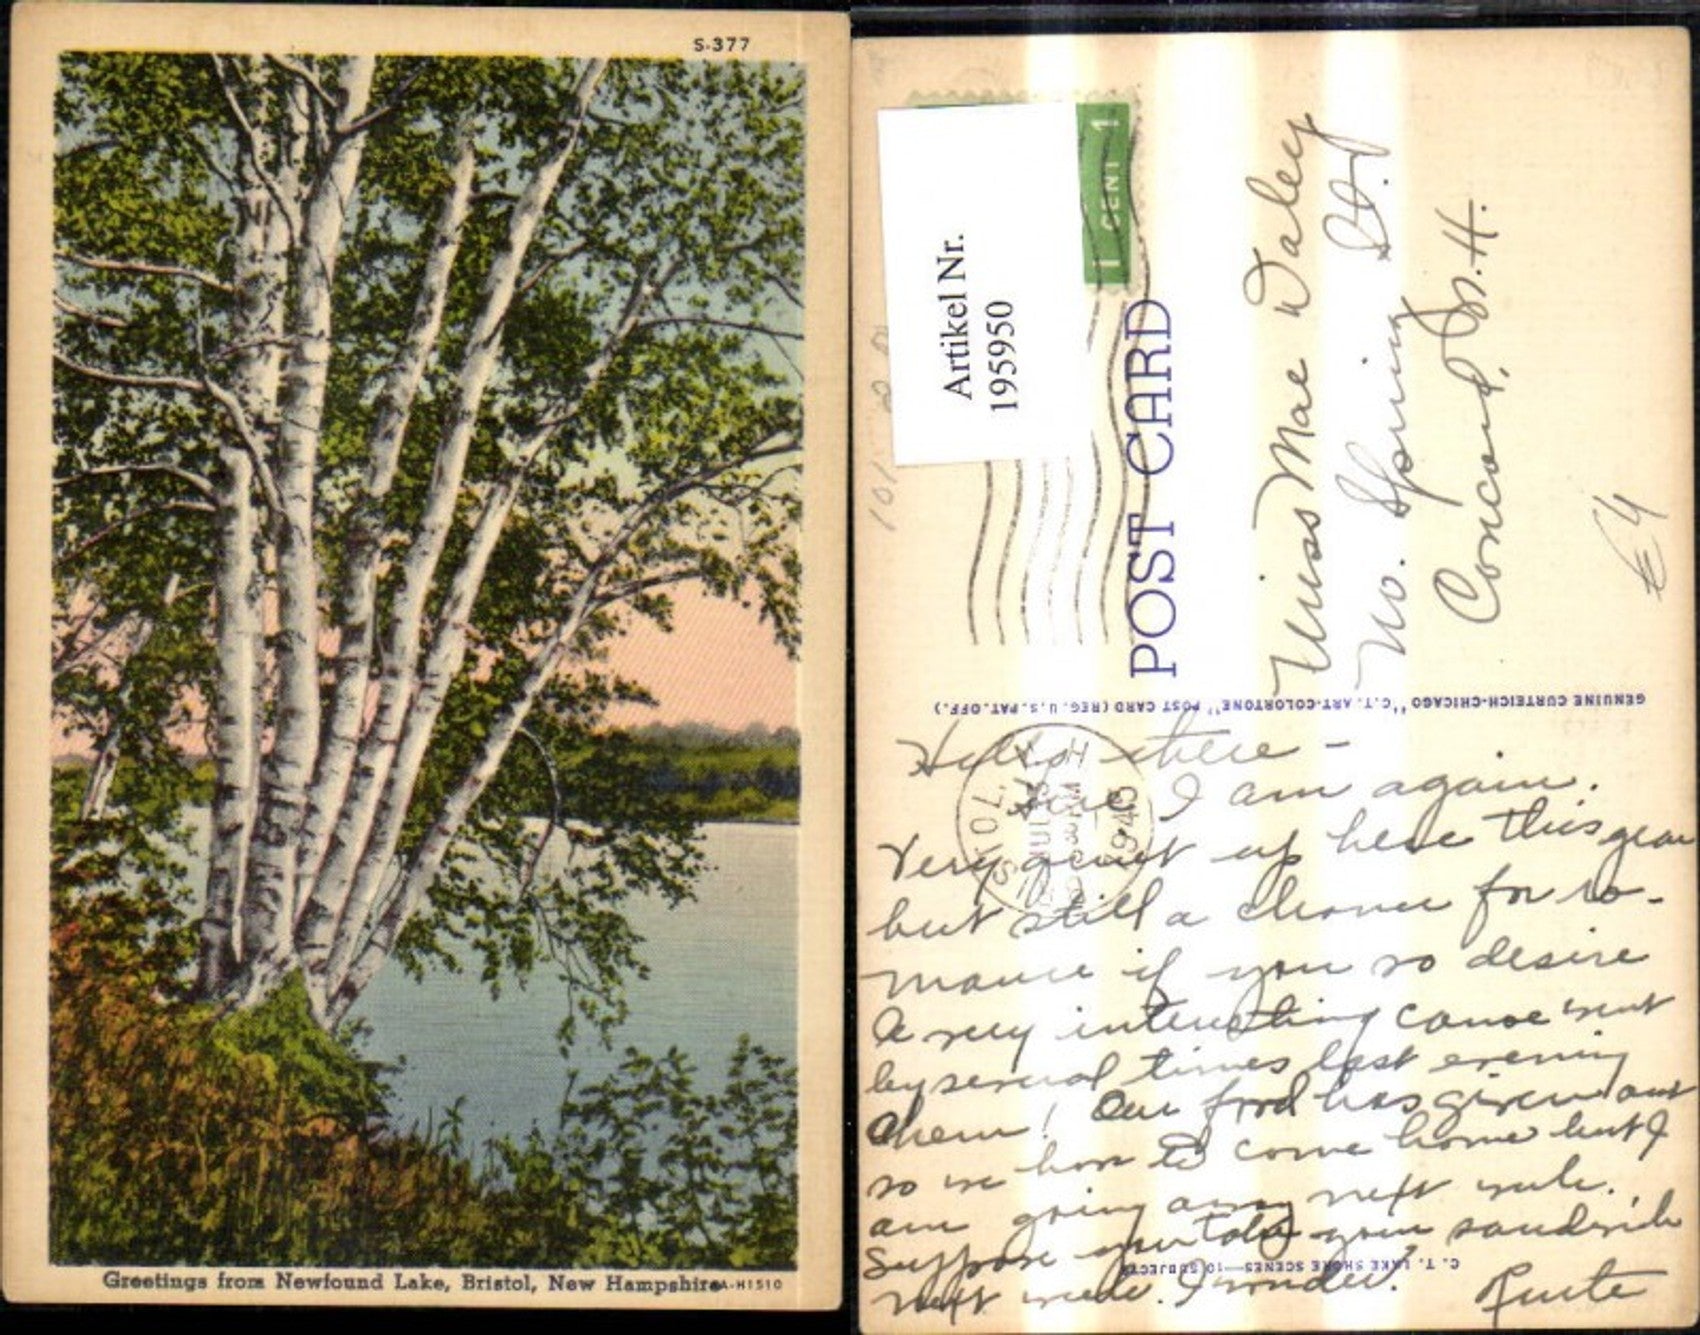 S-377
Greetings from Newfound Lake, Bristol, New Hampshire
A-H1510
Artikel Nr.
195950
1 CENT 1
POST CARD
Miss Mae Daley
No. Spring St.
Concord, N.H.
€4
GENUINE CURTEICH-CHICAGO "C.T. ART-COLORTONE" POST CARD (REG. U.S. PAT. OFF.)
1946
Hello there -
Here I am again.
Very quiet up here this year
but still a chance for ro-
mance if you so desire
A very interesting canoe went
by several times last evening
Ahem! Our food has given out
so we have to come home but I
am going away next week.
Suppose you today your sandwich
next week. I wonder?
C. T. LAKE SHORE SCENES—10 SUBJECTS